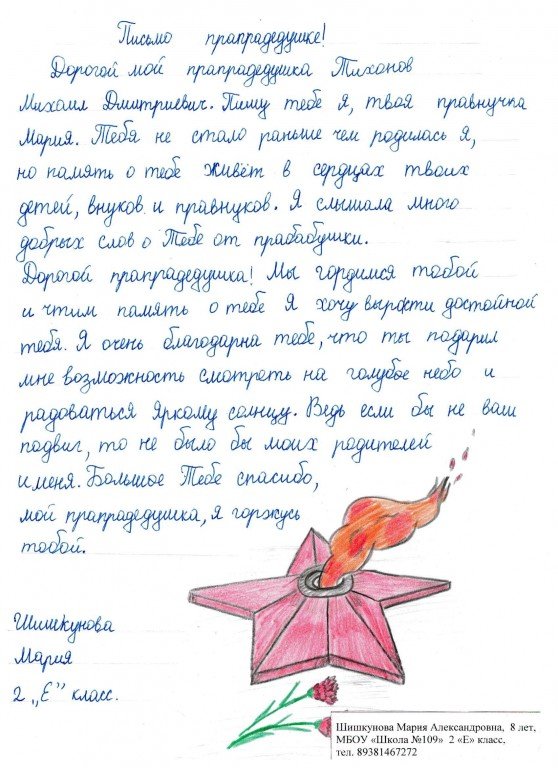 Письмо прапрадедушке!
Дорогой мой прапрадедушка Тихонов
Михаил Дмитриевич. Пишу тебе я, твоя правнучка
Мария. Тебя не стало раньше чем родилась я,
но память о тебе живёт в сердцах твоих
детей, внуков и правнуков. Я слышала много
добрых слов о Тебе от прабабушки.
Дорогой прапрадедушка! Мы гордимся тобой
и чтим память о тебе Я хочу вырости достойной
тебя. Я очень благодарна тебе, что ты подарил
мне возможность смотреть на голубое небо и
радоваться яркому солнцу. Ведь если бы не ваш
подвиг, то не было бы моих родителей
и меня. Большое Тебе спасибо,
мой прапрадедушка, я горжусь
тобой.
Шишкунова
Мария
2 „Е" класс.
Шишкунова Мария Александровна, 8 лет,
МБОУ «Школа №109» 2 «Е» класс,
тел. 89381467272